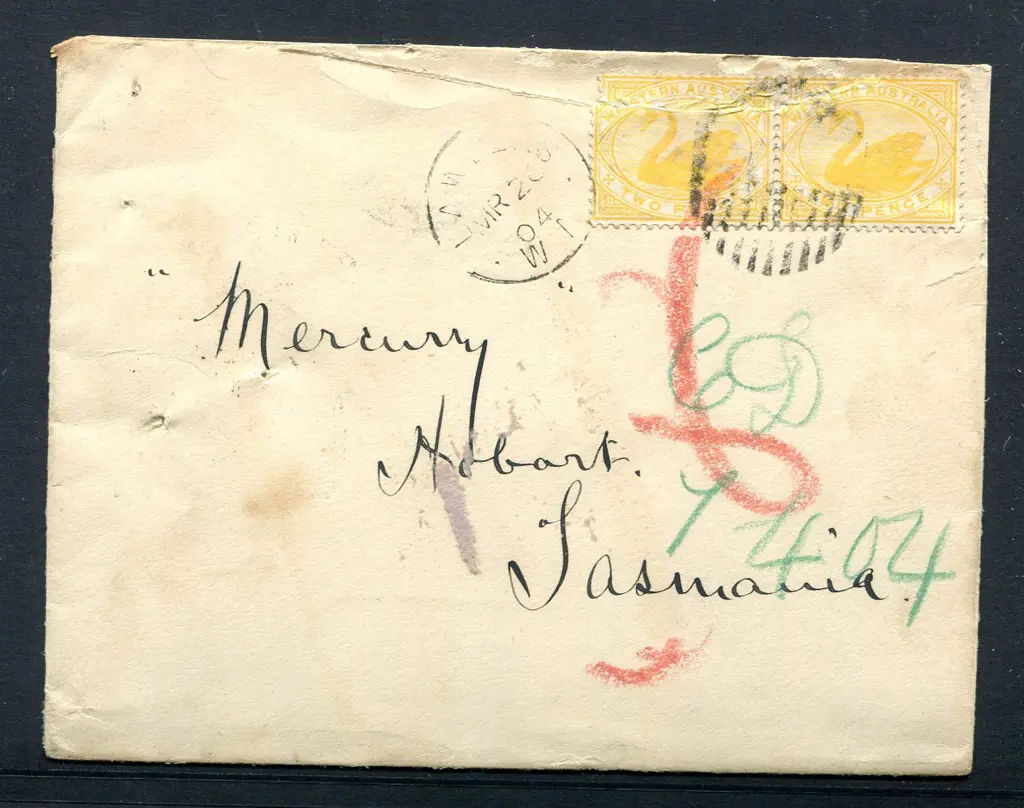 WESTERN AUSTRALIA
TWO
AUSTRALIA
PENCE
MR 20
04
W
"Mercury"
Hobart.
Tasmania.
7 4 04